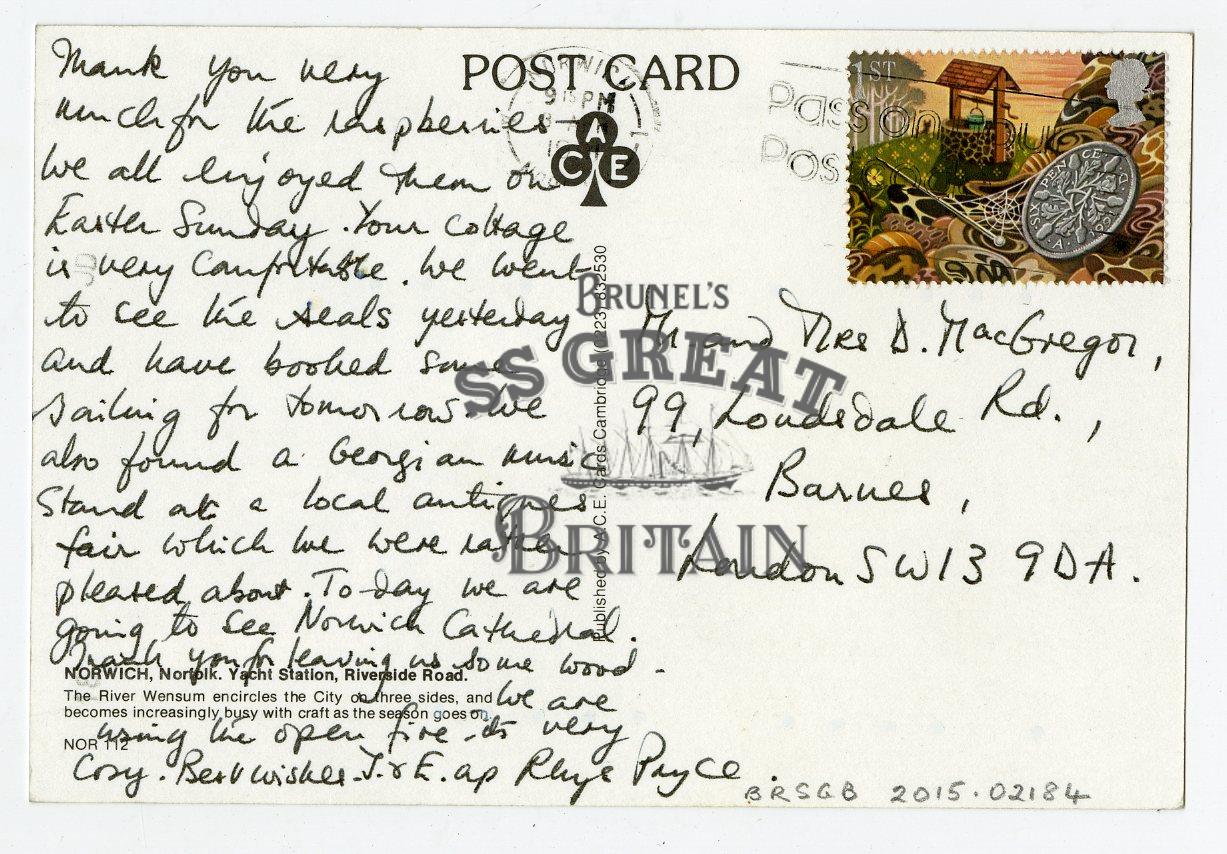 Thank you very
much for the raspberries
We all enjoyed them on
Easter Sunday. Your cottage
is very comfortable. We went
to see the seals yesterday
and have booked some
sailing for tomorrow. We
also found a Georgian music
stand at a local antiques
fair which we were rather
pleased about. To-day we are
going to see Norwich Cathedral.
Thank you for leaving us some wood -
We are
using the open fire - its very
Cosy. Best wishes J. & E. ap Rhys Pryce.
NORWICH, Norfolk. Yacht Station, Riverside Road.
The River Wensum encircles the City on three sides, and
becomes increasingly busy with craft as the season goes on.
NOR 112
POST CARD
NORWICH
9 15 PM
ACE
Pass on your
Pos
1ST
SIX PENCE
Published by A.C.E. Cards Cambridge (0223) 832530
BRUNEL'S
SS GREAT
BRITAIN
Mr and Mrs D. MacGregor,
99, Londsdale Rd.,
Barnes,
London SW13 9DA.
BRSGB 2015.02184